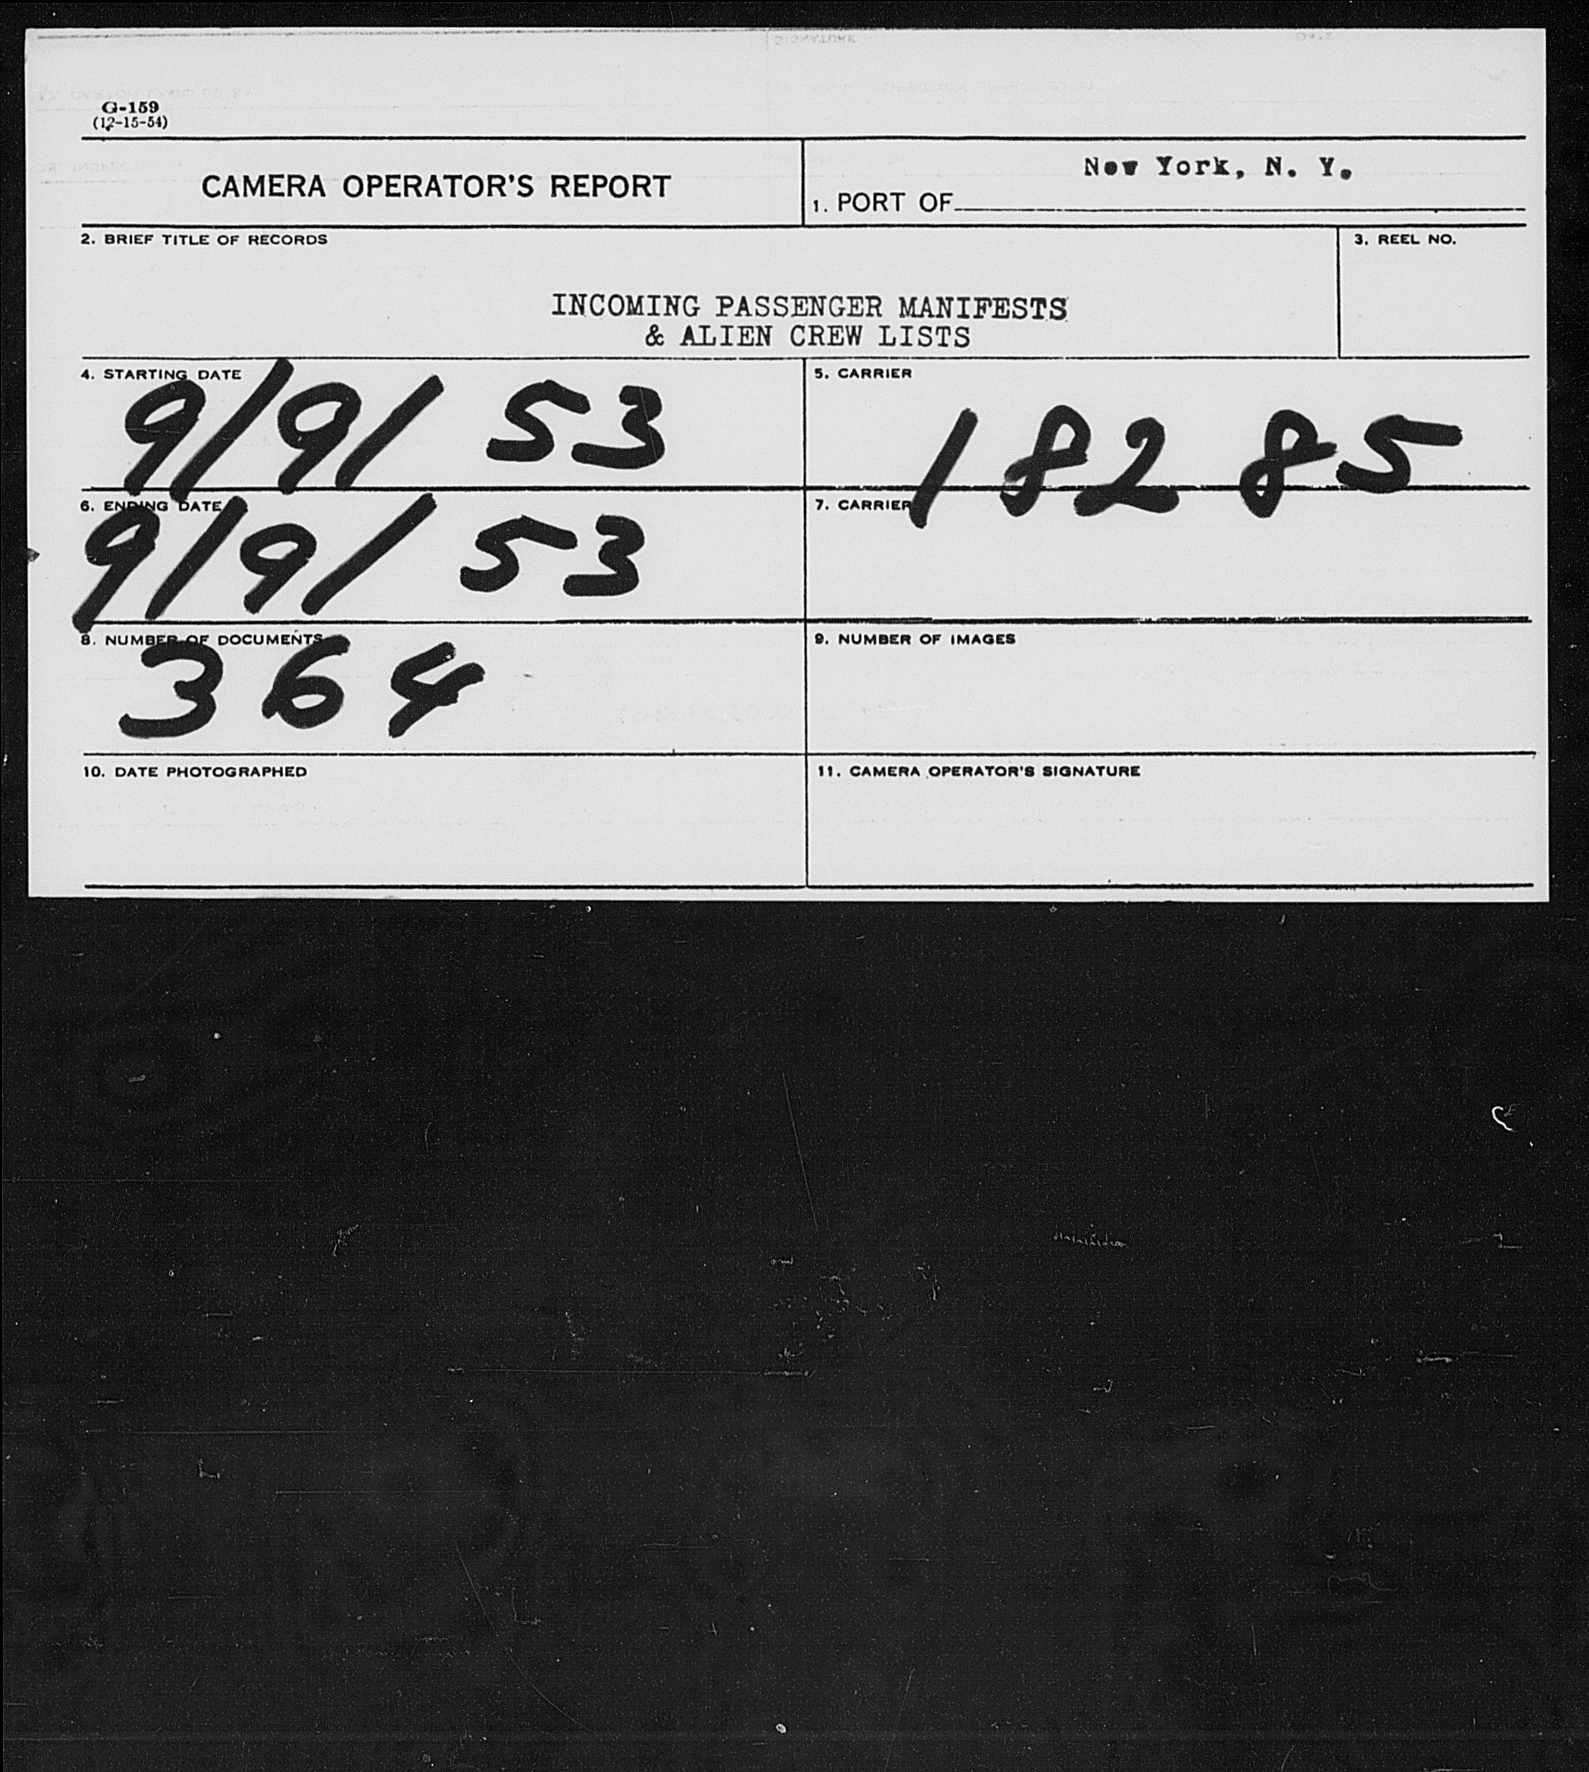 G-159
(12-15-54)
CAMERA OPERATOR'S REPORT
1. PORT OF New York, N. Y.
2. BRIEF TITLE OF RECORDS
3. REEL NO.
INCOMING PASSENGER MANIFESTS
& ALIEN CREW LISTS
4. STARTING DATE
9/9/53
5. CARRIER
18285
6. ENDING DATE
9/9/53
7. CARRIER
8. NUMBER OF DOCUMENTS
364
9. NUMBER OF IMAGES
10. DATE PHOTOGRAPHED
11. CAMERA OPERATOR'S SIGNATURE